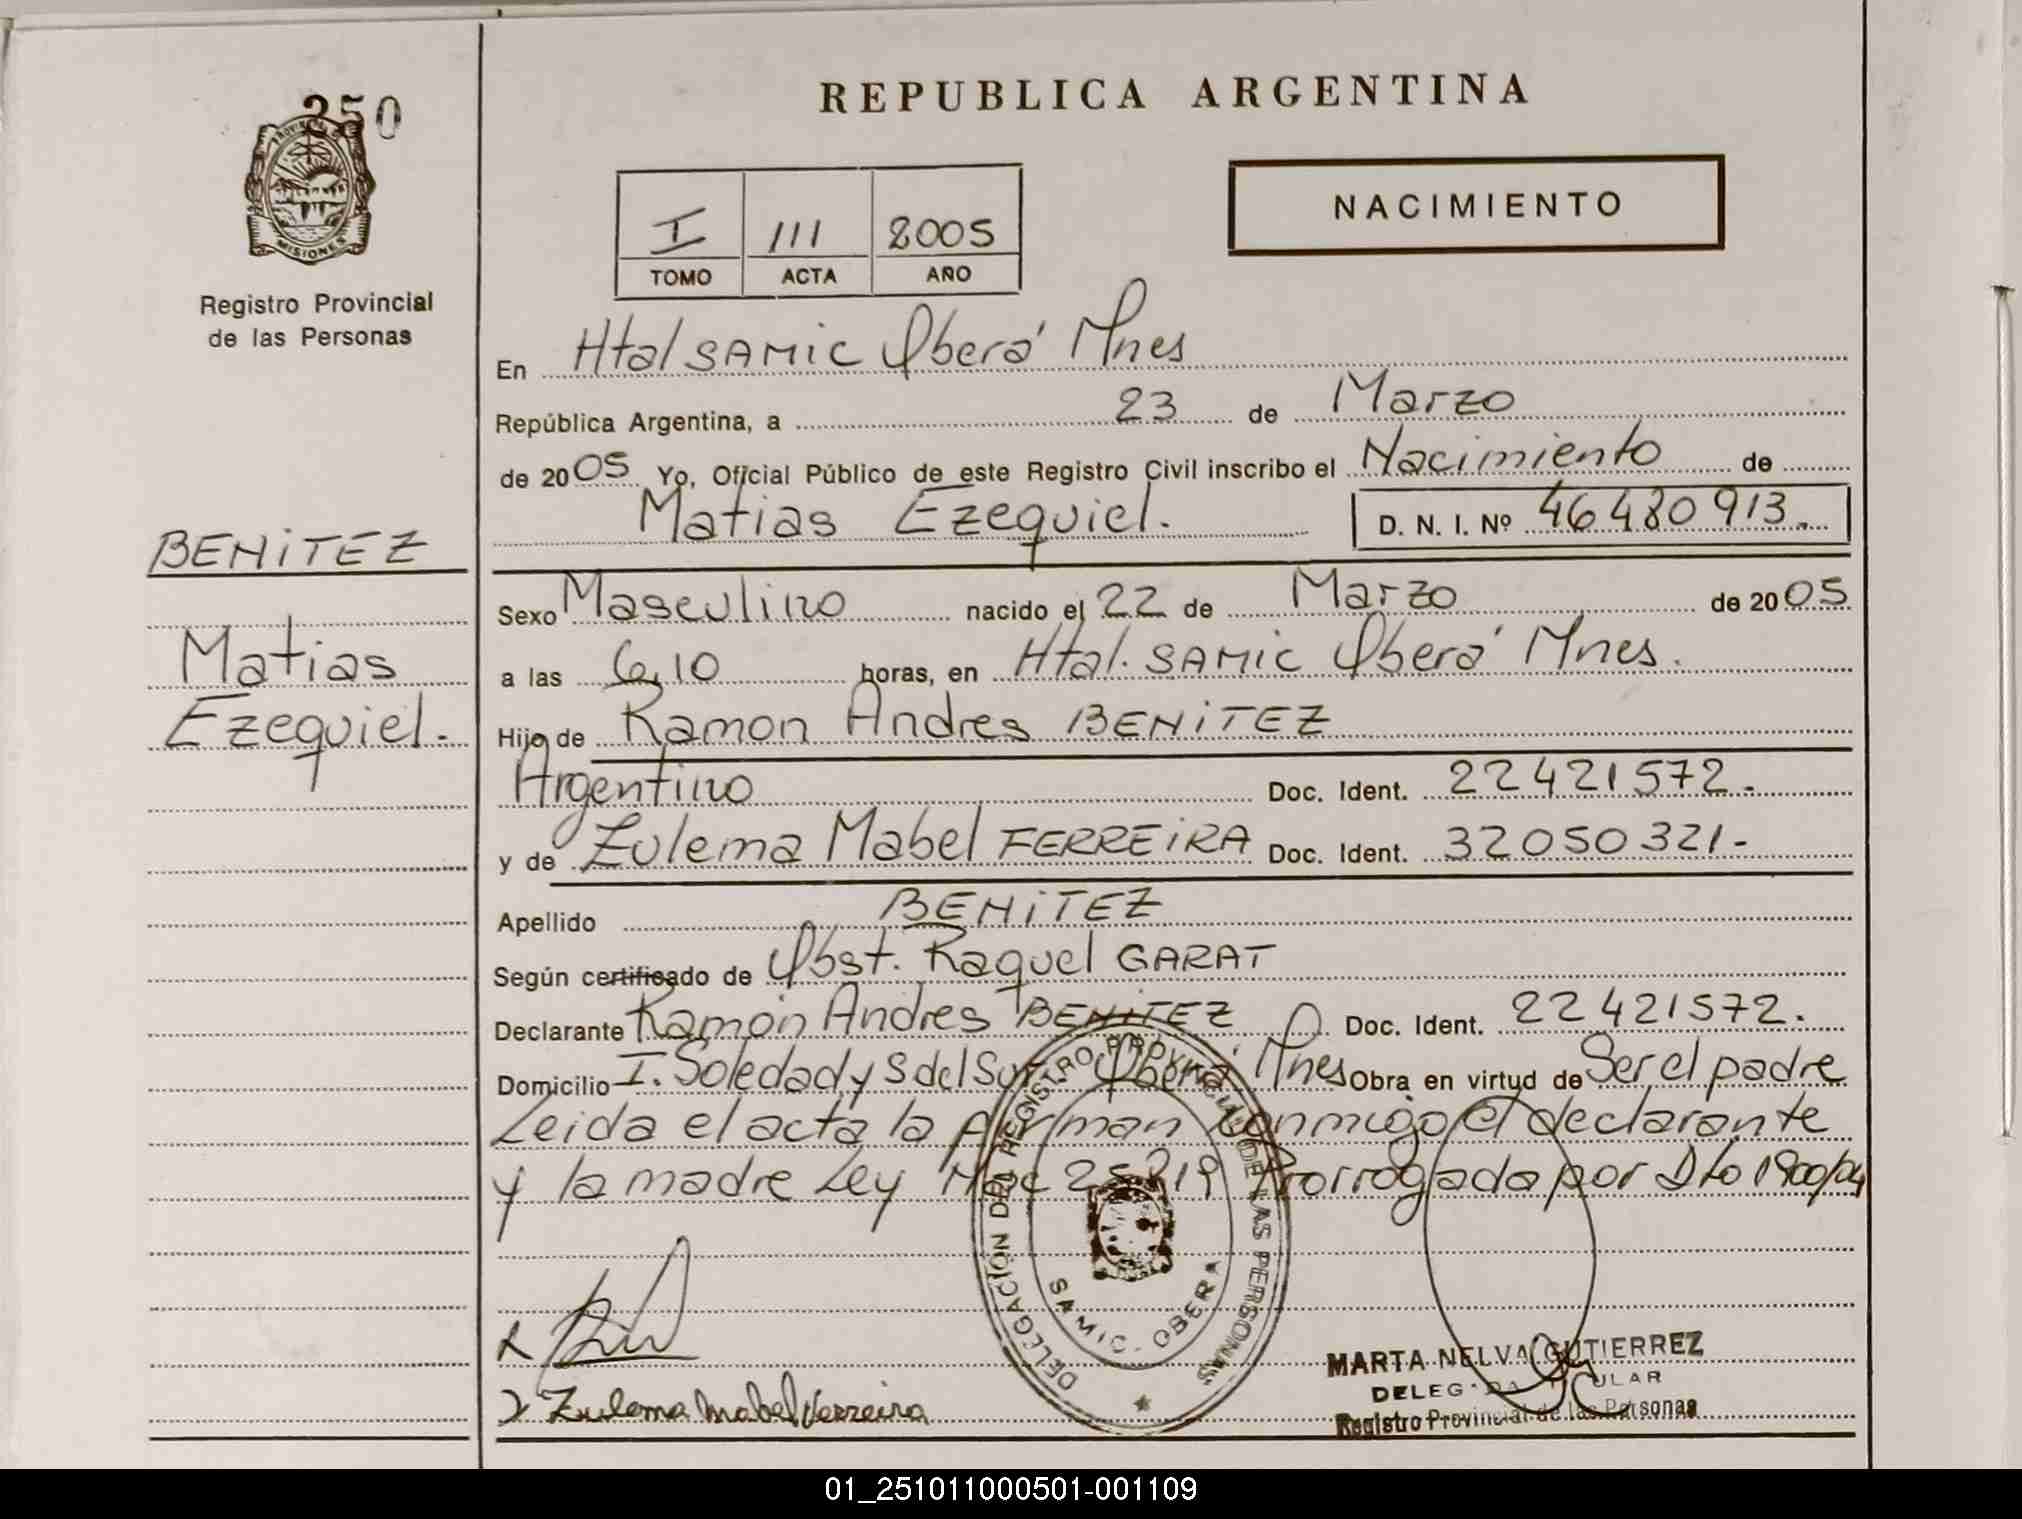 REPUBLICA ARGENTINA
250
PROVINCIA DE
MISIONES
Registro Provincial
de las Personas
I 111 2005
TOMO ACTA AÑO
NACIMIENTO
En Htal SAMIC Oberá Mnes
República Argentina, a 23 de Marzo
de 2005 Yo, Oficial Público de este Registro Civil inscribo el Nacimiento de
Matias Ezequiel. D. N. I. Nº 46480913.
BENITEZ
Matias
Ezequiel.
Sexo Masculino nacido el 22 de Marzo de 2005
a las 6,10 horas, en Htal. SAMIC Oberá Mnes.
Hijo de Ramon Andres BENITEZ
Argentino Doc. Ident. 22421572.
y de Zulema Mabel FERREIRA Doc. Ident. 32050321.-
Apellido BENITEZ
Según certificado de Obst. Raquel GARAT
Declarante Ramón Andres BENITEZ Doc. Ident. 22421572.
Domicilio I. Soledad y S del Sur Oberá Mnes Obra en virtud de Ser el padre
Leida el acta la firman conmigo el declarante
y la madre Ley Nac 25819 Prorrogada por Dto 1900/04
DELEGACIÓN DEL REGISTRO PROVINCIAL DE LAS PERSONAS
SAMIC - OBERA
Zulema Mabel Ferreira
MARTA NELVA GUTIERREZ
DELEGADA TITULAR
Registro Provincial de las Personas
01_251011000501-001109